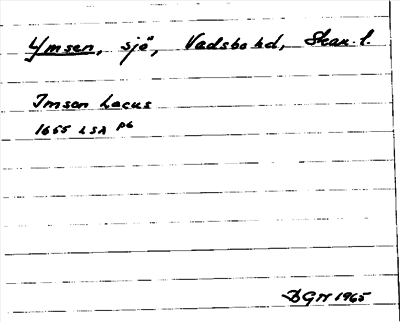 Ymsen, sjö, Vadsbo hd, Skar. l.
Imsen Lacus
1655 LSA p6
DGW 1965